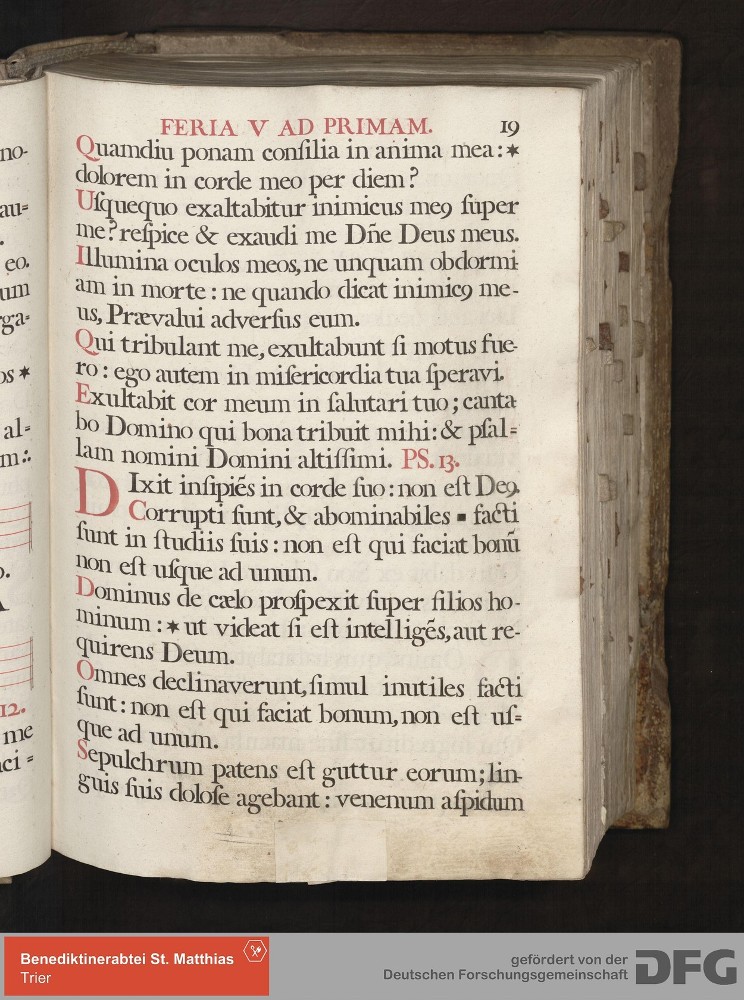 no-
au=
.
eo.
um
ga=
os *
al=
m:.
12.
me
ci =
FERIA V AD PRIMAM. 19
Quamdiu ponam conſilia in anima mea: *
dolorem in corde meo per diem?
Uſquequo exaltabitur inimicus meꝰ ſuper
me? reſpice & exaudi me Dñe Deus meus.
Illumina oculos meos, ne unquam obdormi-
am in morte: ne quando dicat inimicꝰ me-
us, Prævalui adverſus eum.
Qui tribulant me, exultabunt ſi motus fue-
ro: ego autem in miſericordia tua ſperavi.
Exultabit cor meum in ſalutari tuo; canta-
bo Domino qui bona tribuit mihi: & pſal=
lam nomini Domini altiſſimi. PS. 13.
DIxit inſipiẽs in corde ſuo: non eſt Deꝰ.
Corrupti ſunt, & abominabiles ▪ facti
ſunt in ſtudiis ſuis: non eſt qui faciat bonũ
non eſt uſque ad unum.
Dominus de cælo proſpexit ſuper filios ho-
minum: * ut videat ſi eſt intelligẽs, aut re-
quirens Deum.
Omnes declinaverunt, ſimul inutiles facti
ſunt: non eſt qui faciat bonum, non eſt uſ=
que ad unum.
Sepulchrum patens eſt guttur eorum; lin-
guis ſuis doloſe agebant: venenum aſpidum
Benediktinerabtei St. Matthias
Trier
gefördert von der
Deutschen Forschungsgemeinschaft
DFG